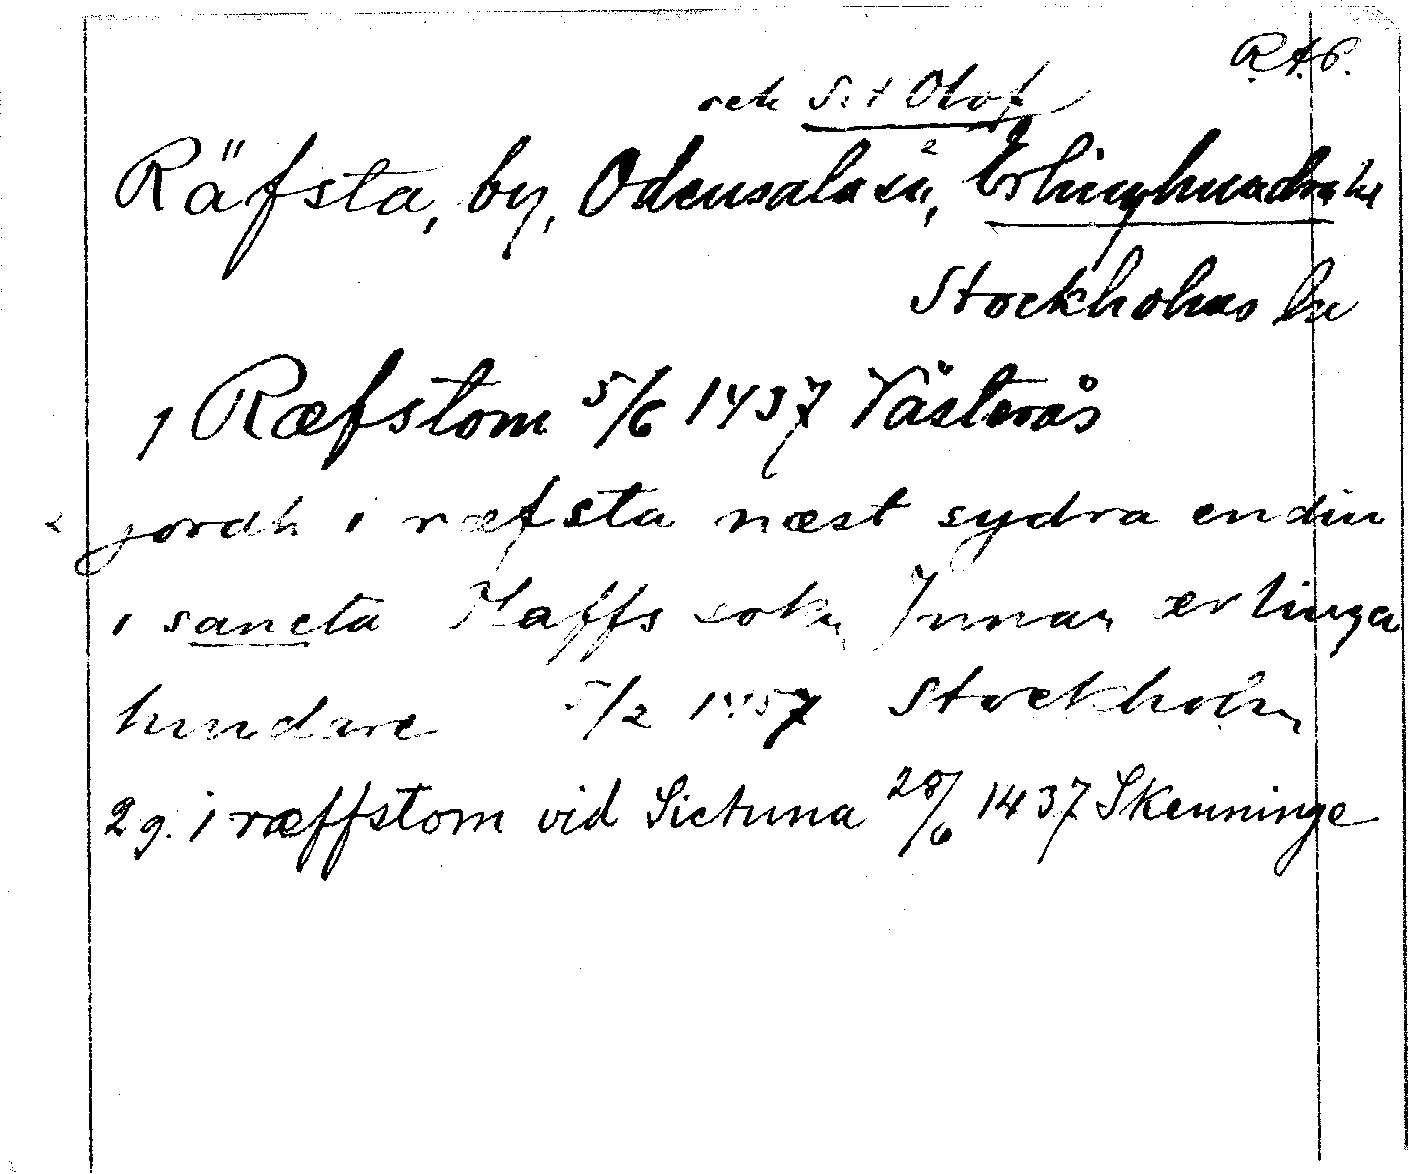 R.A.P.
och S:t Olof
Räfsta, by, Odensala sn, Erlinghundra hd
Stockholms län
1 Ræfstom 5/6 1437 Västerås
jordh i ræfsta næst sydra endin
i sancta Olaffs sokn Innan ærlinga
hundare 5/2 1457 Stockholm
2 g. i ræffstom vid Sictuna 28/6 1437 Skenninge